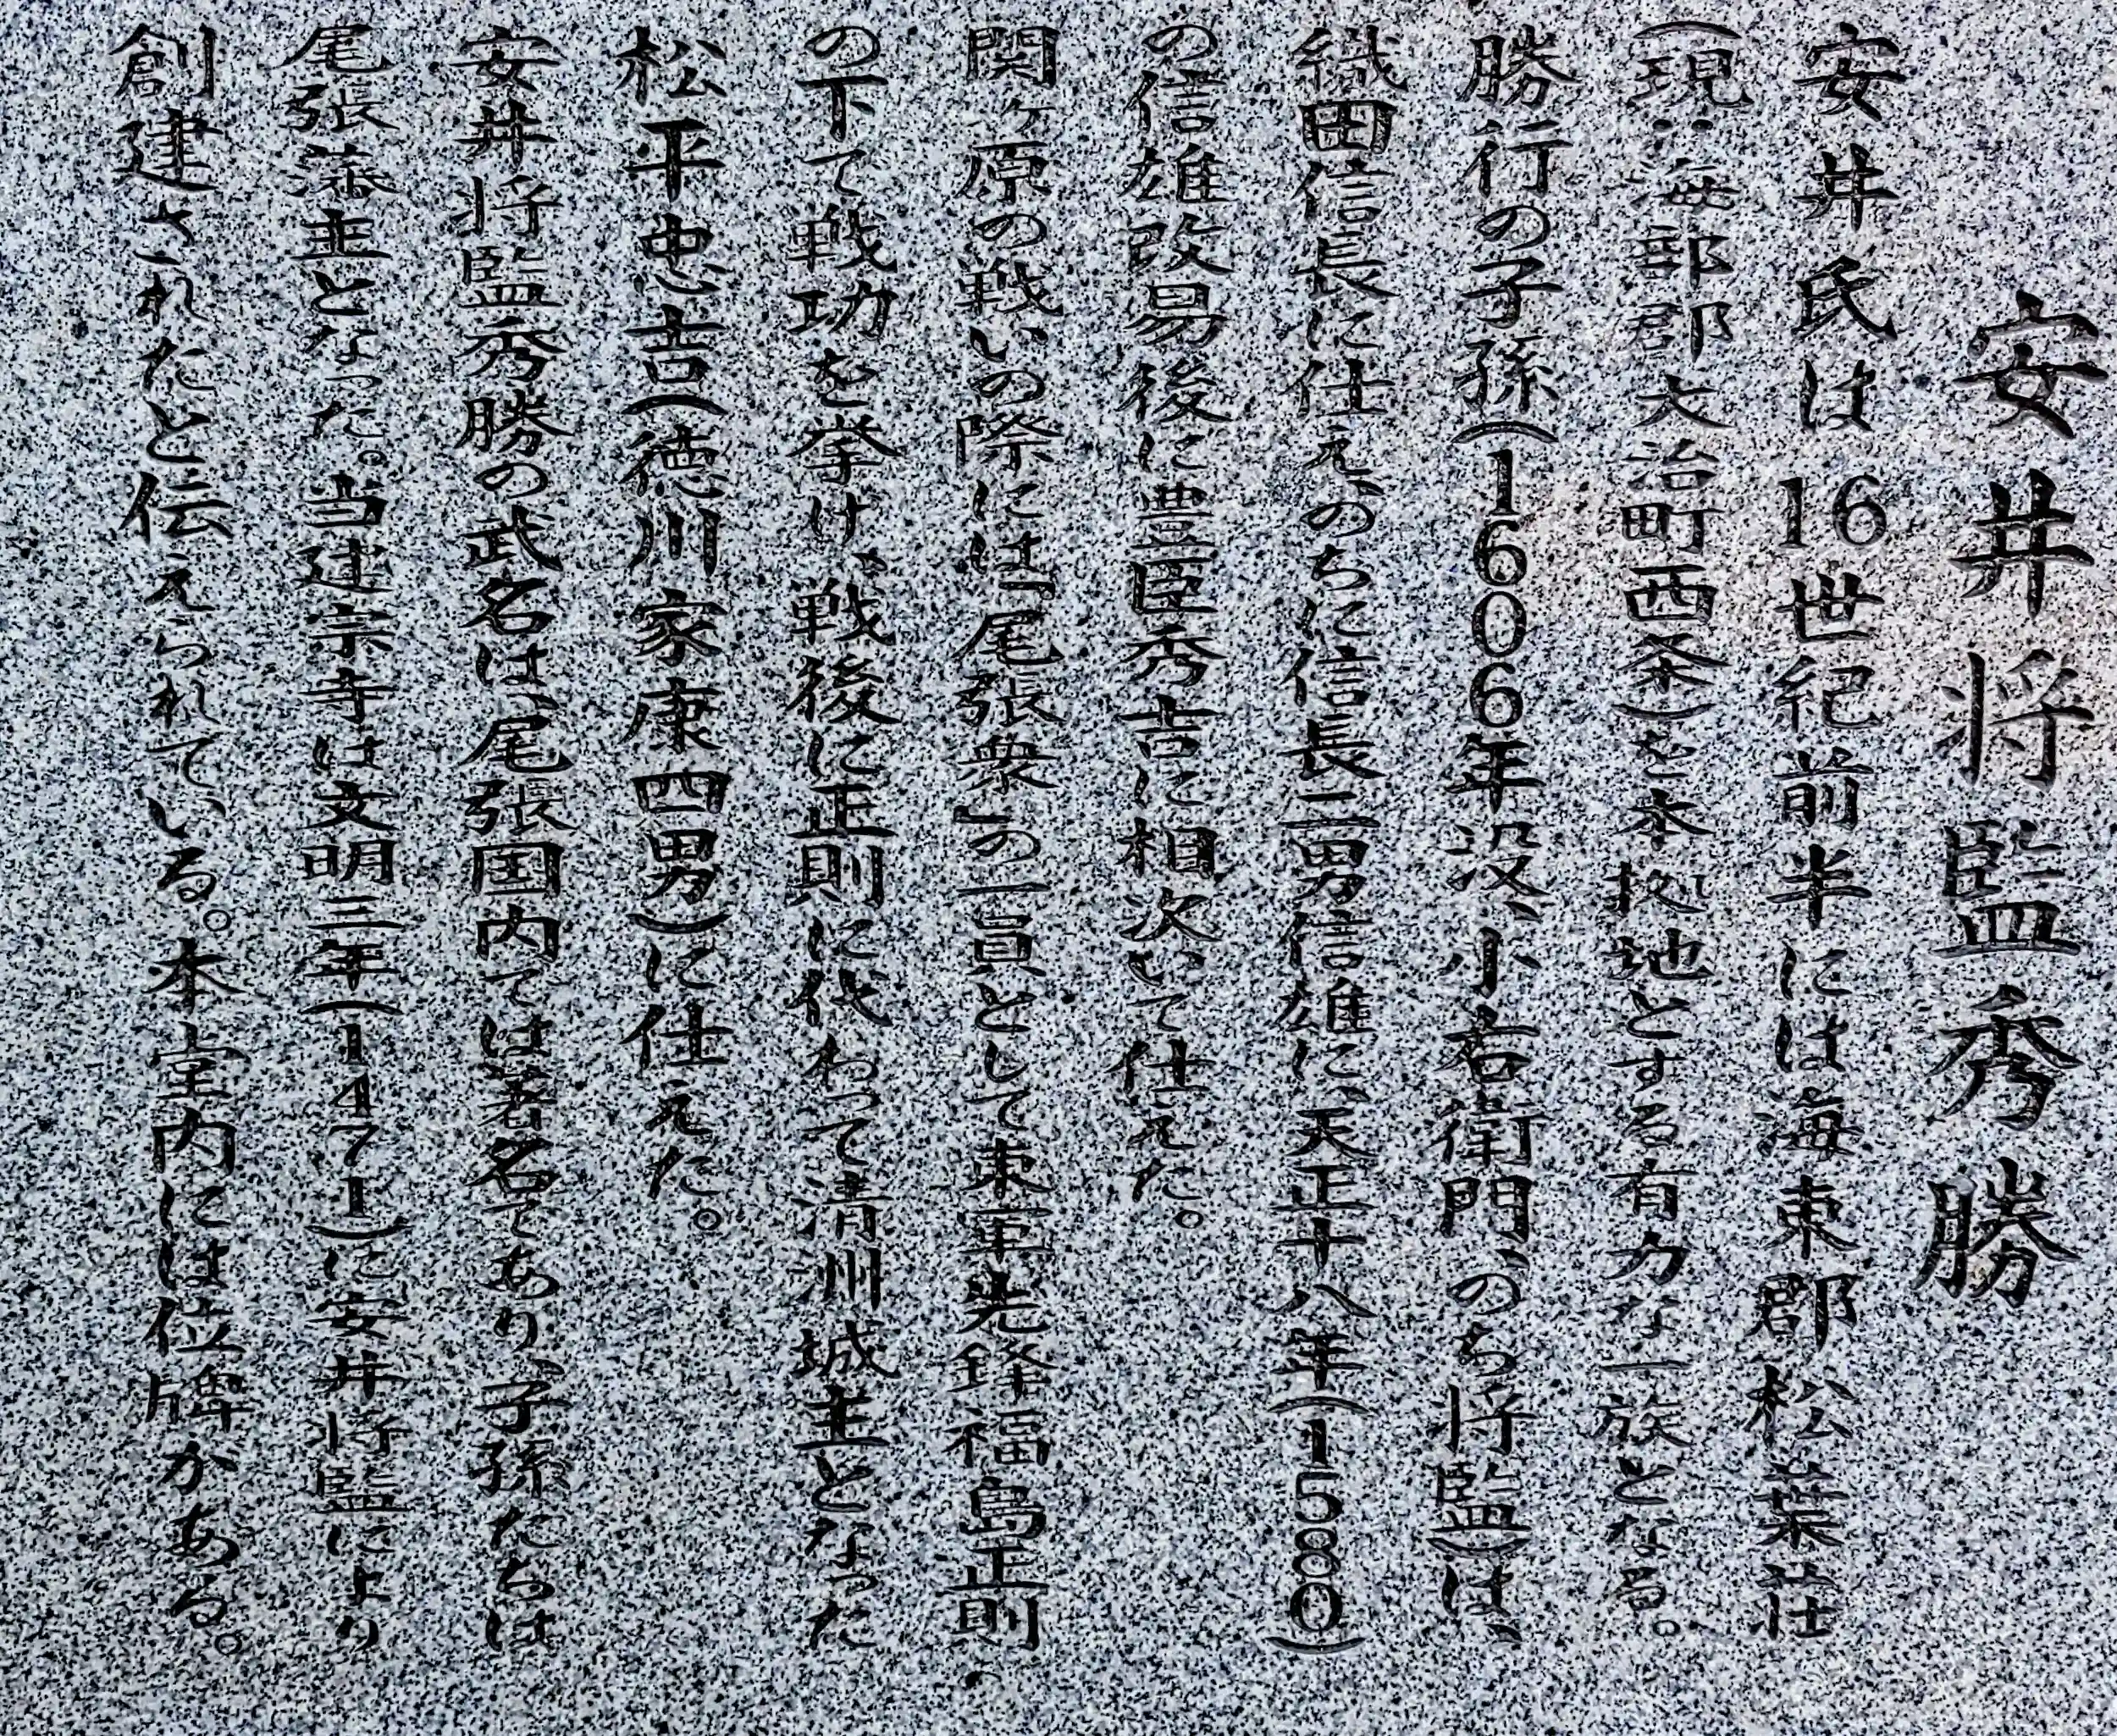 安井将監秀勝
安井氏は16世紀前半には海東郡松葉荘
(現:海部郡大治町西条)を本拠地とする有力な一族となる。
勝行の子孫(1606年没、小右衛門、のち将監)は、
織田信長に仕え、のちに信長二男信雄に、天正十八年(1580)
の信雄改易後に豊臣秀吉に相次いで仕えた。
関ヶ原の戦いの際には「尾張衆」の一員として東軍先鋒福島正則
の下で戦功を挙げ、戦後に正則に代わって清洲城主となった
松平忠吉(徳川家康四男)に仕えた。
安井将監秀勝の武名は、尾張国内では著名であり、子孫たちは
尾張藩主となった。当建宗寺は文明三年(1471)に安井将監により
創建されたと伝えられている。本堂内には位牌がある。